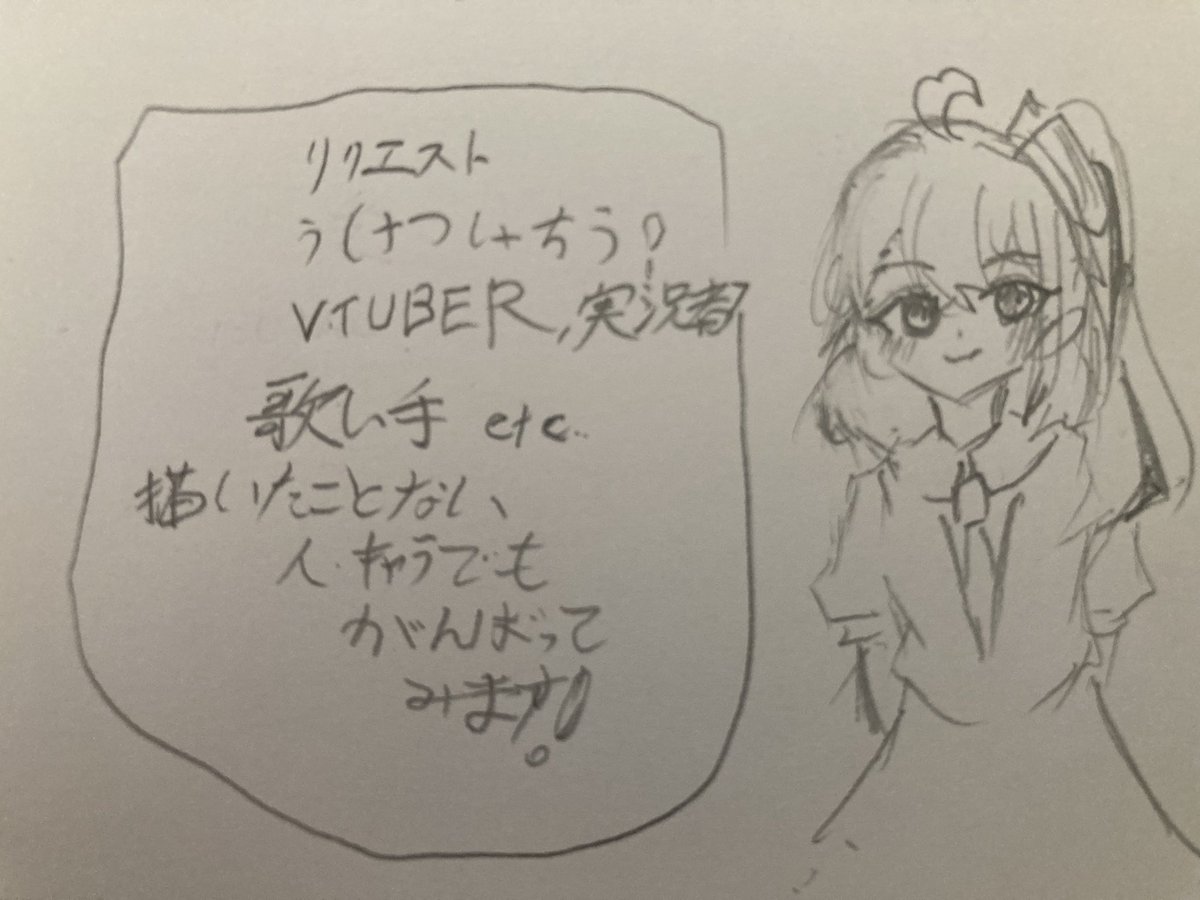 リクエスト
うけつけちう!
VTUBER,実況者
歌い手 etc..
描いたことない、
人・キャラでも
がんばって
みます!